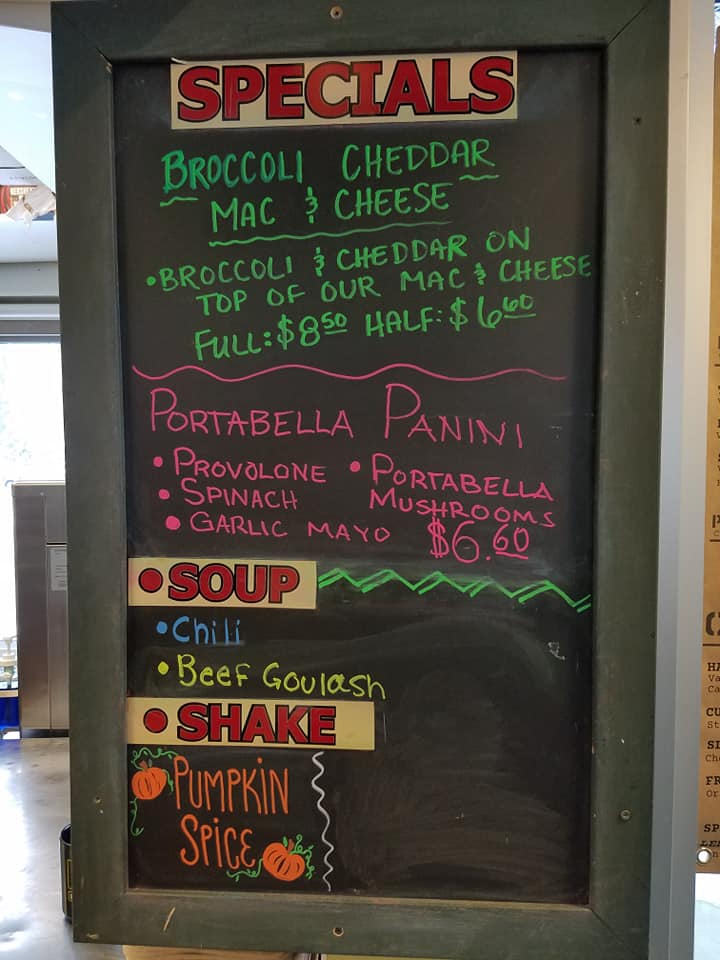 SPECIALS
BROCCOLI CHEDDAR
MAC & CHEESE
•BROCCOLI & CHEDDAR ON
TOP OF OUR MAC & CHEESE
FULL: $8 50 HALF: $6 60
PORTABELLA PANINI
• PROVOLONE • PORTABELLA
• SPINACH MUSHROOMS
• GARLIC MAYO $6.60
•SOUP
•Chili
•Beef Goulash
•SHAKE
PUMPKIN
SPICE